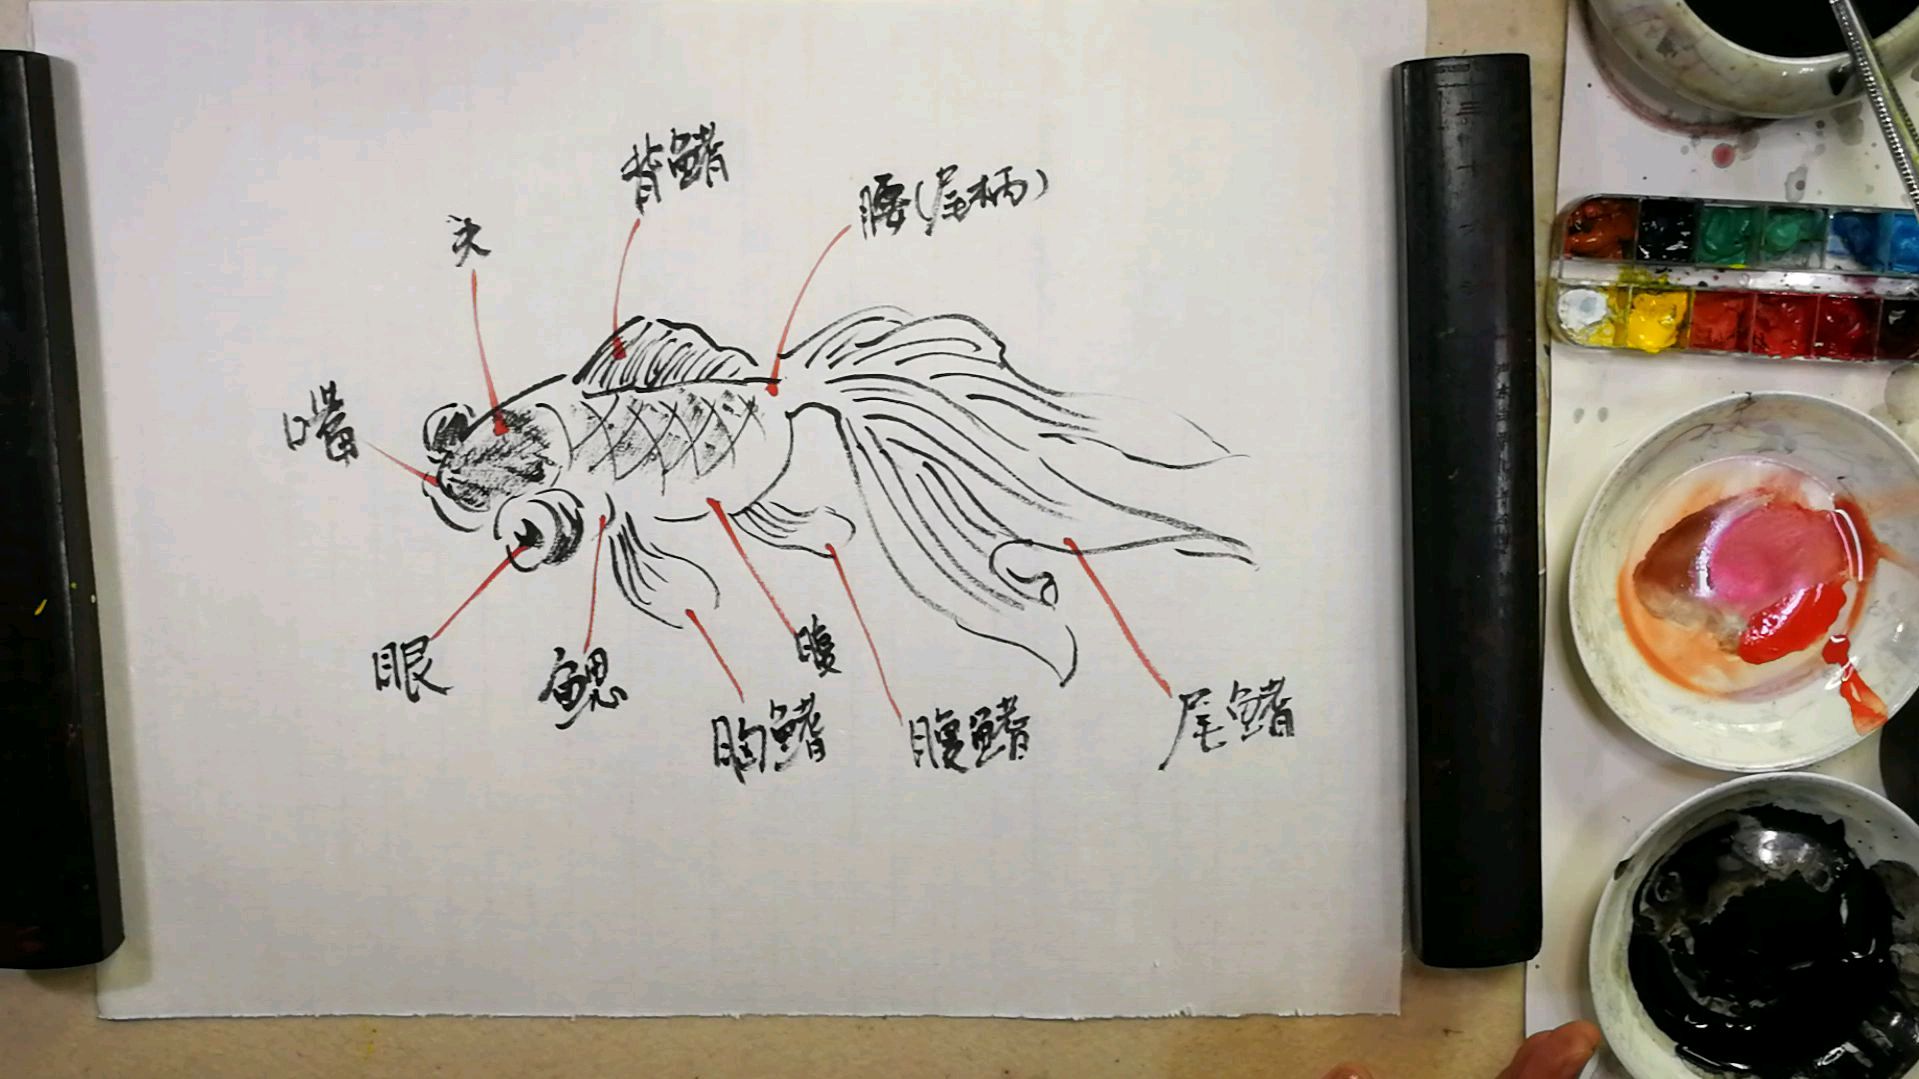 背鳍
腰(尾柄)
头
嘴
眼
鳃
腹
胸鳍
腹鳍
尾鳍